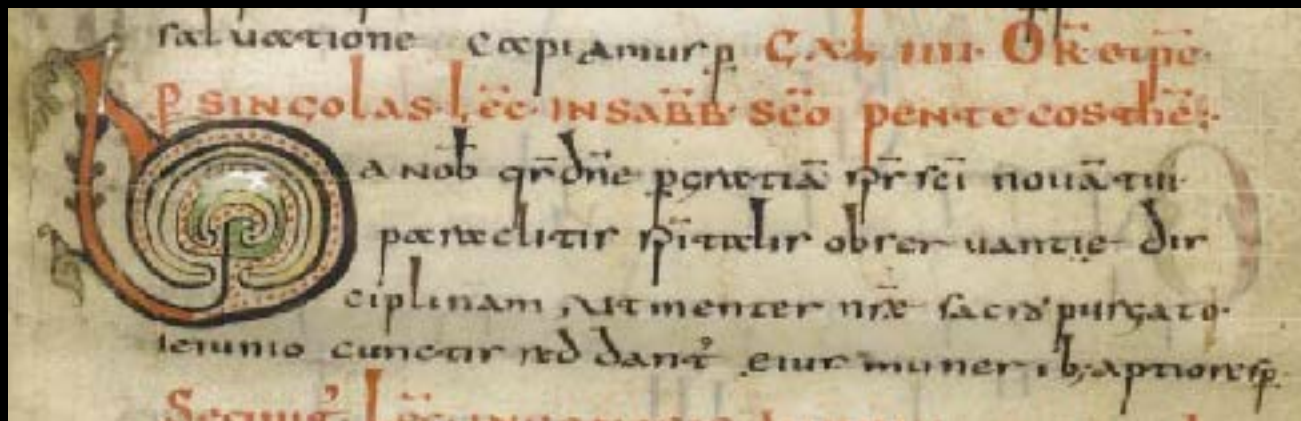 saluatione capiamus p̄ IIII· OR̄
P̄ SINGOLAS· LĒC· IN SABB̄· SC̄O PENTECOSTHĒ:
DA NOB̄ qr̄ dn̄e p gratiā sp̄s sc̄i nouā tui
paraclitis sp̄italis obseruantie dis
ciplinam, ut mentes nr̄ae sacro purgato·
ieiunio cunctis reddant᷒ eius munerib; aptiores p̄